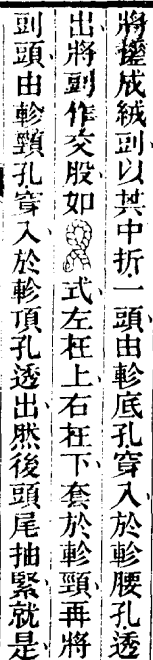 將成絨剅以其中折一頭由軫底孔穿入於軫腰孔透
出將剅作交股如式左在上右在下套於軫頸再將
剅頭由軫頸孔穿入於軫頂孔透出然後頭尾抽緊就是